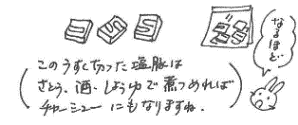 なるほど
このうすく切った塩豚は
さとう、酒、しょうゆで煮つめれば
チャーシューにもなりますね。